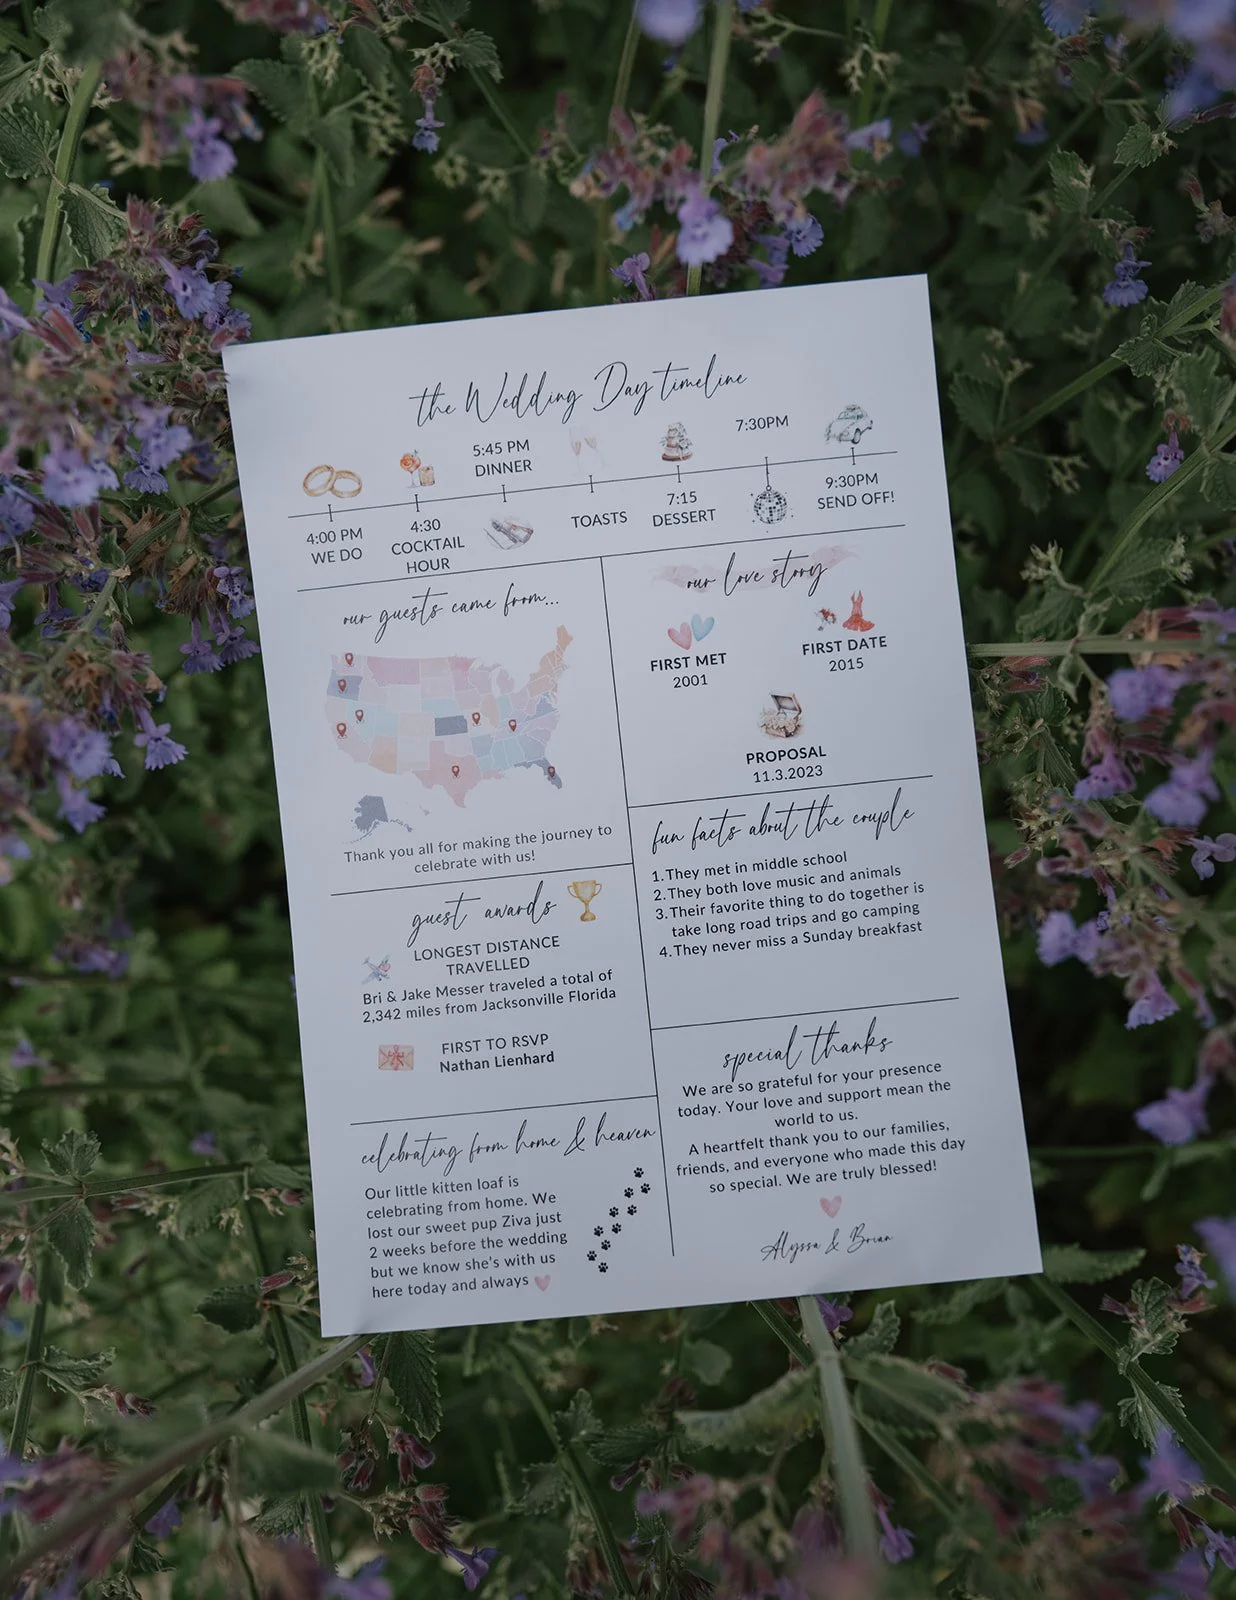 the Wedding Day timeline
4:00 PM
WE DO
4:30
COCKTAIL
HOUR
5:45 PM
DINNER
TOASTS
7:15
DESSERT
7:30PM
9:30PM
SEND OFF!
our guests came from...
Thank you all for making the journey to
celebrate with us!
guest awards
LONGEST DISTANCE
TRAVELLED
Bri & Jake Messer traveled a total of
2,342 miles from Jacksonville Florida
FIRST TO RSVP
Nathan Lienhard
celebrating from home & heaven
Our little kitten loaf is
celebrating from home. We
lost our sweet pup Ziva just
2 weeks before the wedding
but we know she's with us
here today and always
our love story
FIRST MET
2001
FIRST DATE
2015
PROPOSAL
11.3.2023
fun facts about the couple
1. They met in middle school
2. They both love music and animals
3. Their favorite thing to do together is
take long road trips and go camping
4. They never miss a Sunday breakfast
special thanks
We are so grateful for your presence
today. Your love and support mean the
world to us.
A heartfelt thank you to our families,
friends, and everyone who made this day
so special. We are truly blessed!
Alyssa & Brian